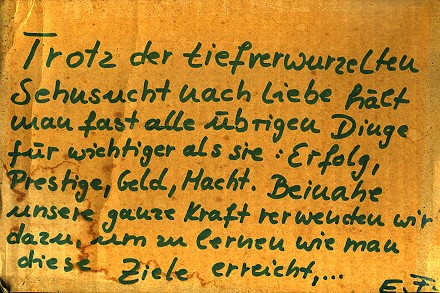 Trotz der tiefverwurzelten
Sehnsucht nach Liebe hält
man fast alle übrigen Dinge
für wichtiger als sie: Erfolg,
Prestige, Geld, Macht. Beinahe
unsere ganze Kraft verwenden wir
dazu, um zu lernen wie man
diese Ziele erreicht,...
E. F.